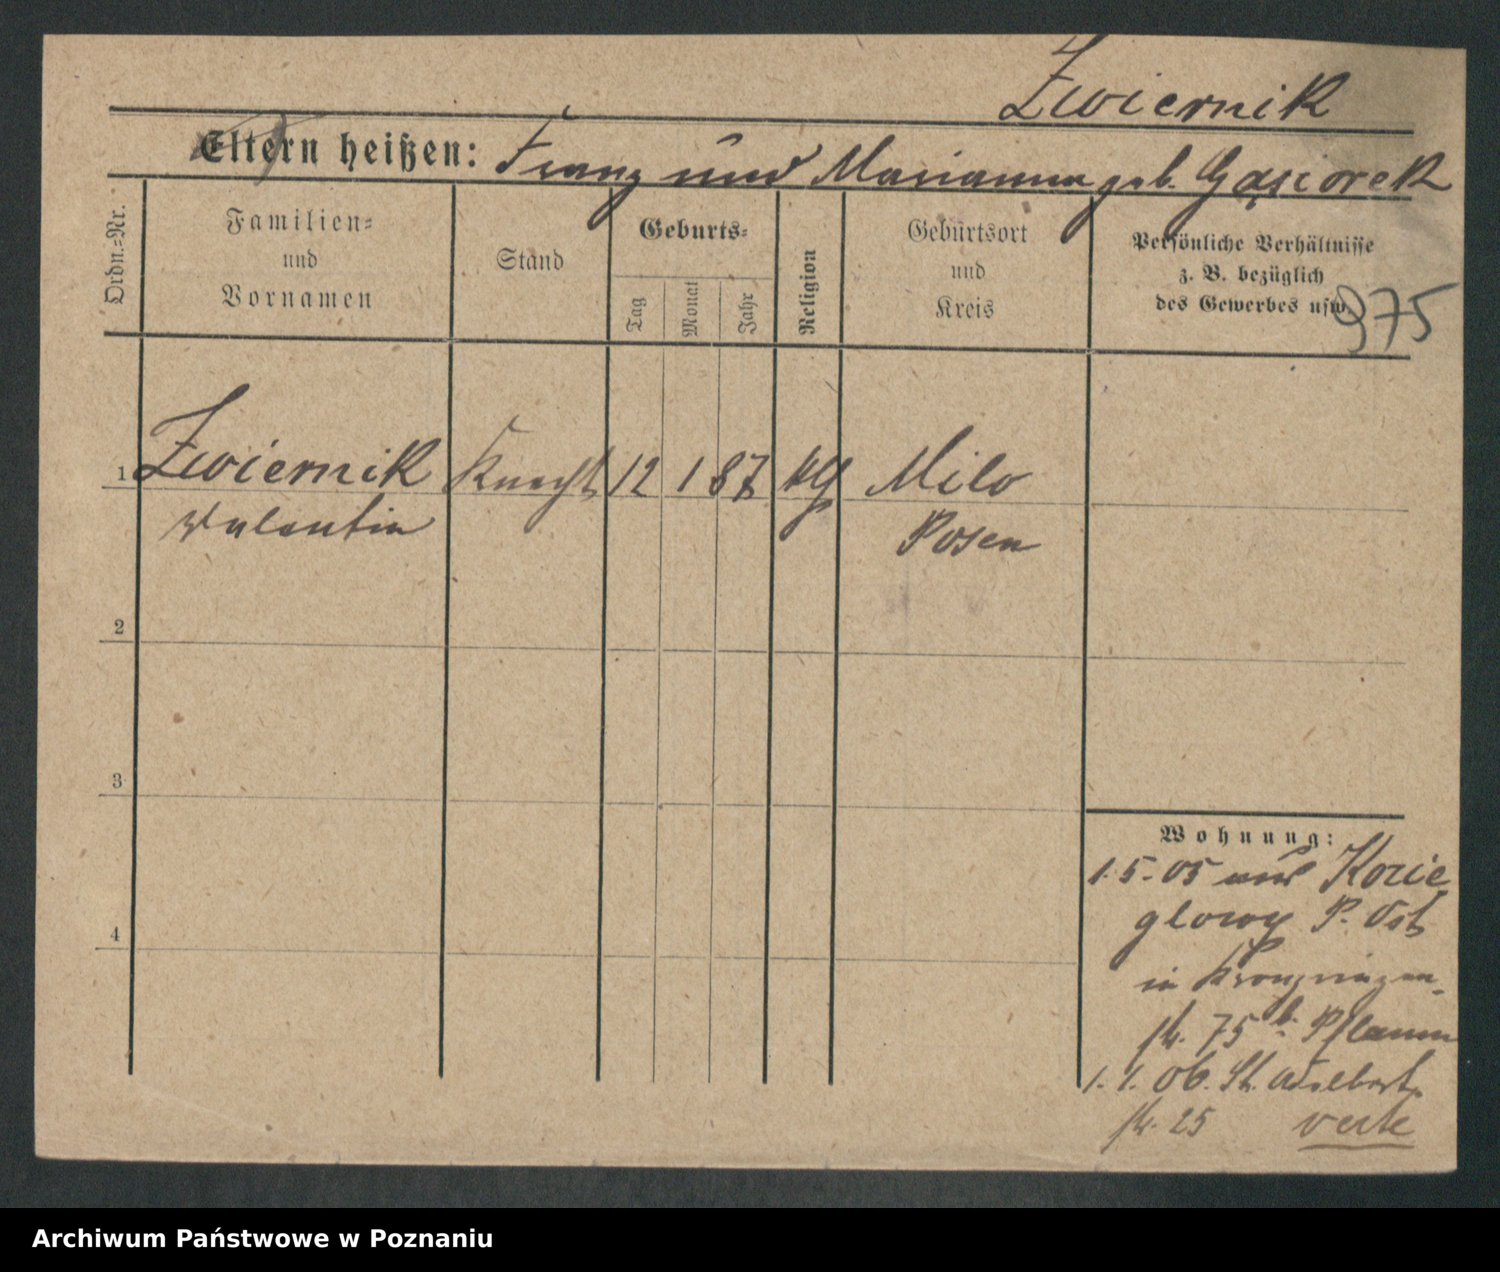 Zwiernik
Eltern heißen: Franz und Marianna geb. Gąsiorek
Ordn.-Nr.
Familien-
und
Vornamen
Stand
Geburts-
Tag
Monat
Jahr
Religion
Geburtsort
und
Kreis
Persönliche Verhältnisse
z. B. bezüglich
des Gewerbes usw.
975
1 Zwiernik Knecht 12 1 87 kth Milo
Valentin Posen
2
3
4
Wohnung:
1.5.05 aus Kozie
glowy P. Ost
in Kronprinzen-
str. 75 b. Pflaum
1.1.06. St. Adalbert
str. 25 verte
Archiwum Państwowe w Poznaniu